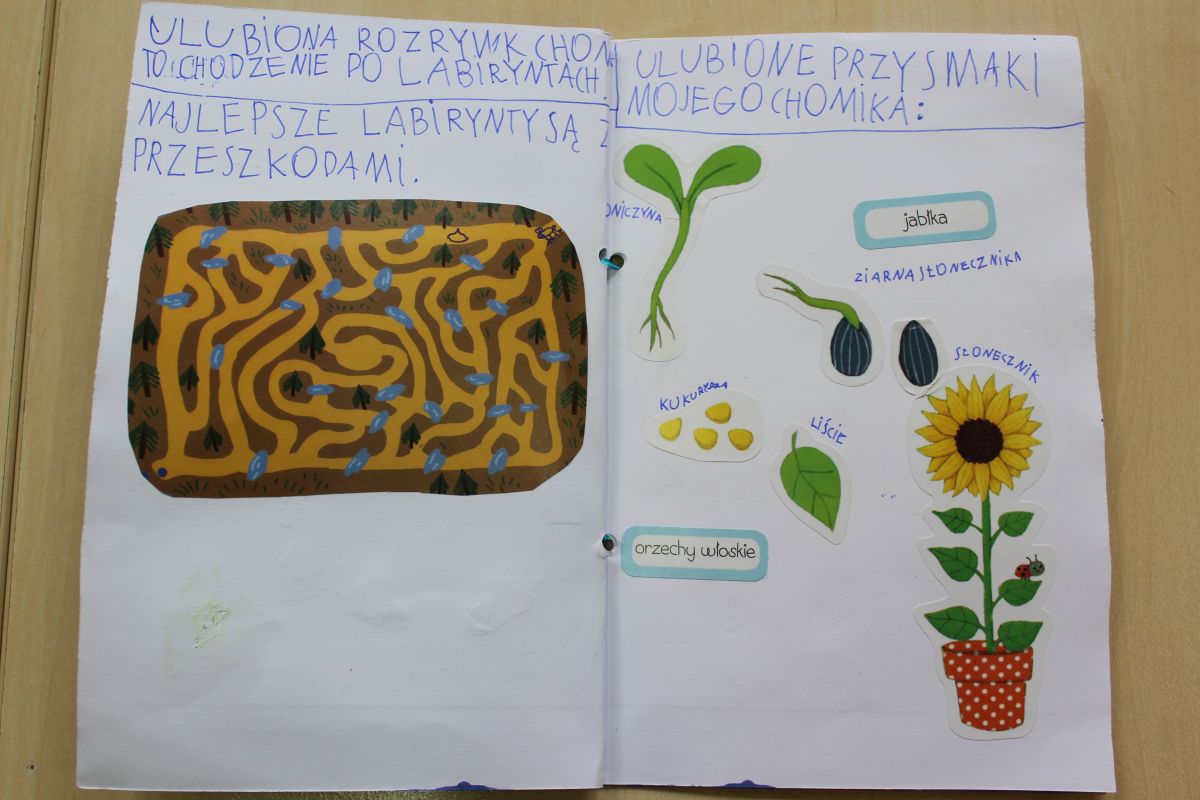 ULUBIONA ROZRYWK CHOM
TO CHODZENIE PO LABIRYNTACH.
NAJLEPSZE LABIRYNTY SĄ Z
PRZESZKODAMI.
ULUBIONE PRZYSMAKI
MOJEGO CHOMIKA:
ONICZYNA
jabłka
ZIARNA SŁONECZNIKA
SŁONECZNIK
KUKURYDZA
LIŚCIE
orzechy włoskie